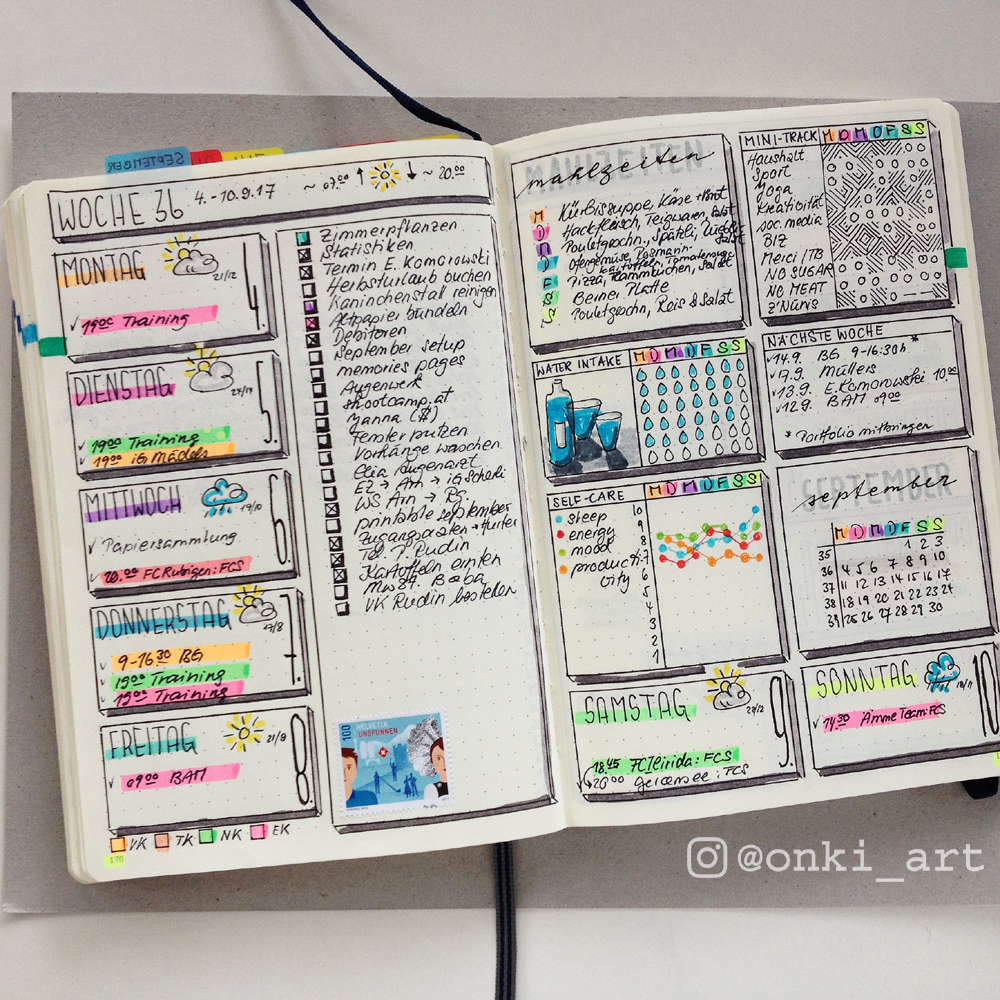 SEPTEMBER
WOCHE 36 4.-10.9.17 ~ 07.00 ↑ ↓ ~ 20.00
MONTAG
21/12
4
19.00 Training
DIENSTAG
5.
19.00 Training
19.00 iG Mädels
MITTWOCH
19/10
6
Papiersammlung
20.00 FC Rubigen : FCS
DONNERSTAG
27/8
7.
9-16.30 BG
19.00 Training
19.00 Training
FREITAG
21/9
8
09.00 BAM
VK TK NK EK
170
Zimmerpflanzen
Statistiken
Termin E. Komorowski
Herbsturlaub buchen
Kaninchenstall reinigen
Altpapier bündeln
Debitoren
September setup
memories pages
Augenwerk
shootcamp.at
Yanna ($)
Fenster putzen
Vorhänge waschen
Elia Augenarzt
WS Arn → Bg
printable september
Tel. P. Rudin
Kartoffeln ernten
VK Rudin bestellen
100
HELVETIA
UNSPUNNEN
MAHLZEITEN
mahlzeiten
M Kürbissuppe, Käse + Brot
D Hackfleisch, Teigwaren, Salat
M Pouletgschn., Spätzli,
D Ofengemüse, Rosmarin-
kartoffeln,
F Pizza, Flammkuchen, Salat
S Berner Platte
S Pouletgschn., Reis & Salat
MINI-TRACK M D M D F S S
Haushalt
Sport
Yoga
Kreativität
soc. media
BIZ
Merci / TB
NO SUGAR
NO MEAT
WATER INTAKE M D M D F S S
NÄCHSTE WOCHE
14.9. BG 9-16:30h *
17.9. Müllers
13.9. E. Komorowski 10.00
12.9. BAM 09.00
* Portfolio mitbringen
SELF-CARE M D M D F S S
sleep
energy
mood
productiv-
ity
10
9
8
7
6
5
4
3
2
1
SEPTEMBER
september
M D M D F S S
35 1 2 3
36 4 5 6 7 8 9 10
37 11 12 13 14 15 16 17
38 18 19 20 21 22 23 24
39 25 26 27 28 29 30
SAMSTAG
9.
18.45 FC Heirida : FCS
20.00 : FCS
SONNTAG
10
14.30 Ämme Team : FCS
@onki_art